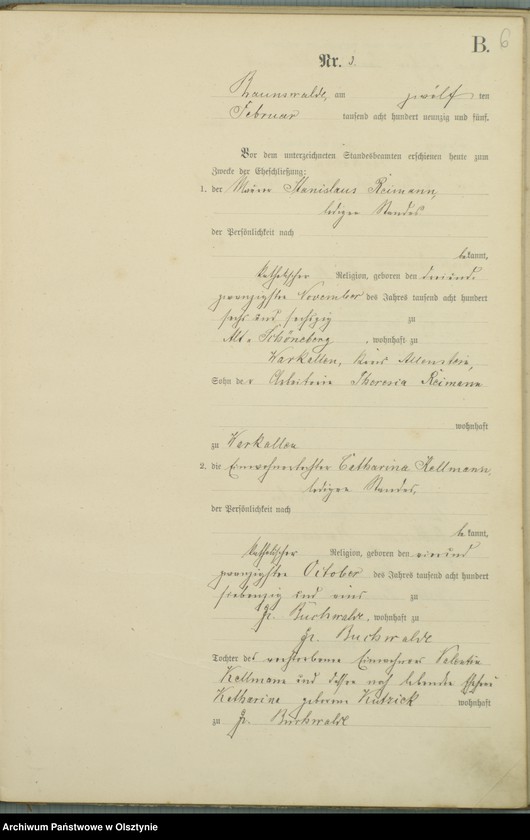 B. 6
Nr. 3.
Braunswalde, am zwölf ten
Februar tausend acht hundert neunzig und fünf.
Vor dem unterzeichneten Standesbeamten erschienen heute zum
Zwecke der Eheschließung:
1. der Maurer Stanislaus Reimann,
ledigen Standes
der Persönlichkeit nach
bekannt,
katholischer Religion, geboren den dreiund
zwanzigsten November des Jahres tausend acht hundert
sechs und sechszig zu
Alt-Schöneberg, wohnhaft zu
Warkallen, Kreis Allenstein,
Sohn der Arbeiterin Theresia Reimann
wohnhaft
zu Warkallen
2. die Einwohnertochter Catharina Kellmann,
ledigen Standes,
der Persönlichkeit nach
bekannt,
katholischer Religion, geboren den einund
zwanzigsten October des Jahres tausend acht hundert
siebenzig und eins zu
Gr. Buchwalde, wohnhaft zu
Gr. Buchwalde
Tochter des verstorbenen Einwohners Valentin
Kellmann und dessen noch lebende Ehefrau
Katharina geborene Kutzick wohnhaft
zu Gr. Buchwalde
Archiwum Państwowe w Olsztynie